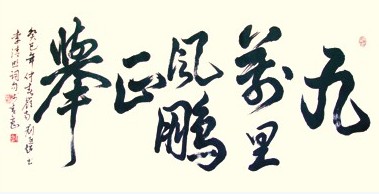 九
萬里
風鵬
正
舉
癸巳年仲春
李清照詞句